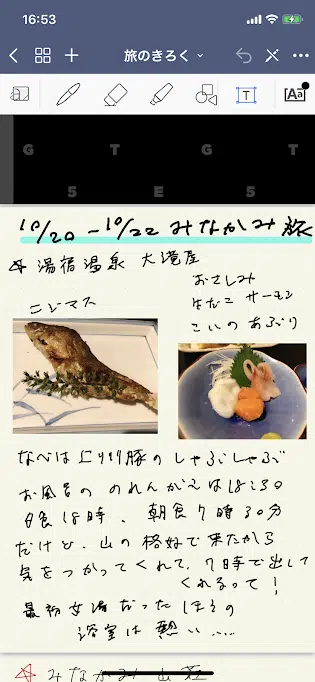 16:53
旅のきろく
T
Aa
G T G T
5 E 5
10/20 ~ 10/22 みなかみ旅
湯宿温泉 大滝屋
おさしみ
生だこ サーモン
こいの あぶり
ニジマス
なべは上州豚のしゃぶしゃぶ
お風呂の のれんがえは18:30
夕食18時、朝食7時30分
だけど、山の格好で来たから
気をつかってくれて、7時で出して
くれるって!
最初女湯だったほうの
浴室は熱い....
みなかみ山荘